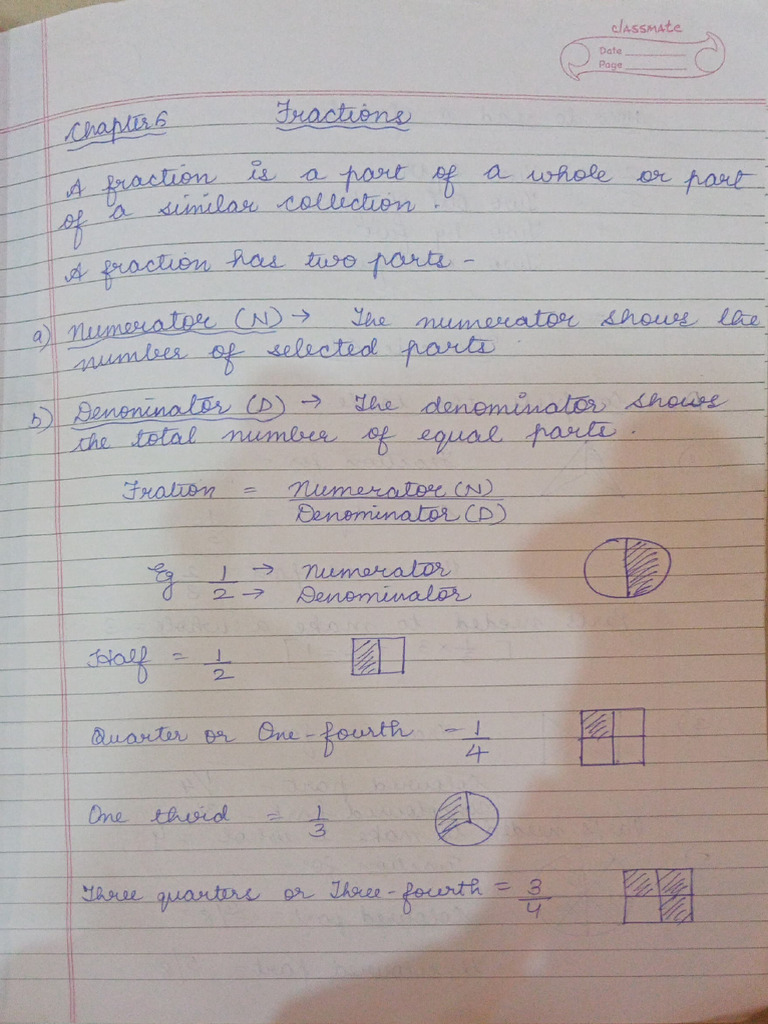 classmate
Date
Page
Chapter 6 Fractions
A fraction is a part of a whole or part
of a similar collection.
A fraction has two parts -
a) Numerator (N) → The numerator shows the
number of selected parts
b) Denominator (D) → The denominator shows
the total number of equal parts.
Fration = Numerator (N)
Denominator (D)
Eg 1 → Numerator
2 → Denominator
Half = 1/2
Quarter or One-fourth - 1/4
One third = 1/3
Three quarters or Three-fourth = 3/4